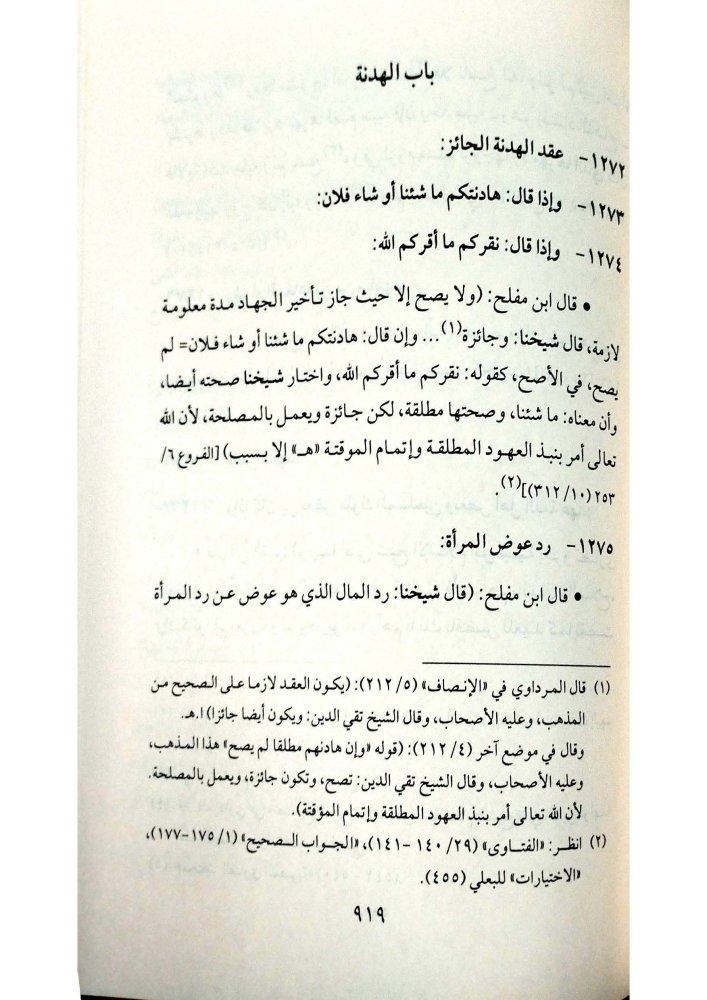 باب الهدنة
١٢٧٢- عقد الهدنة الجائز:
١٢٧٣- وإذا قال: هادنتكم ما شئنا أو شاء فلان:
١٢٧٤- وإذا قال: نقركم ما أقركم الله:
• قال ابن مفلح: (ولا يصح إلا حيث جاز تأخير الجهاد مدة معلومة
لازمة، قال شيخنا: وجائزة(١) ... وإن قال: هادنتكم ما شئنا أو شاء فلان= لم
يصح، في الأصح، كقوله: نقركم ما أقركم الله، واختار شيخنا صحته أيضا،
وأن معناه: ما شئنا، وصحتها مطلقة، لكن جائزة ويعمل بالمصلحة، لأن الله
تعالى أمر بنبذ العهود المطلقة وإتمام الموقتة «هـ» إلا بسبب) [الفروع ٦/
٢٥٣ (١٠/ ٣١٢)](٢).
١٢٧٥- رد عوض المرأة:
• قال ابن مفلح: (قال شيخنا: رد المال الذي هو عوض عن رد المرأة
(١) قال المرداوي في «الإنصاف» (٥/ ٢١٢): (يكون العقد لازما على الصحيح من
المذهب، وعليه الأصحاب، وقال الشيخ تقي الدين: ويكون أيضا جائزا) ا.هـ.
وقال في موضع آخر (٤/ ٢١٢): (قوله «وإن هادنهم مطلقا لم يصح» هذا المذهب،
وعليه الأصحاب، وقال الشيخ تقي الدين: تصح، وتكون جائزة، ويعمل بالمصلحة.
لأن الله تعالى أمر بنبذ العهود المطلقة وإتمام المؤقتة).
(٢) انظر: «الفتاوى» (٢٩/ ١٤٠ -١٤١)، «الجواب الصحيح» (١/ ١٧٥-١٧٧)،
«الاختيارات» للبعلي (٤٥٥).
٩١٩